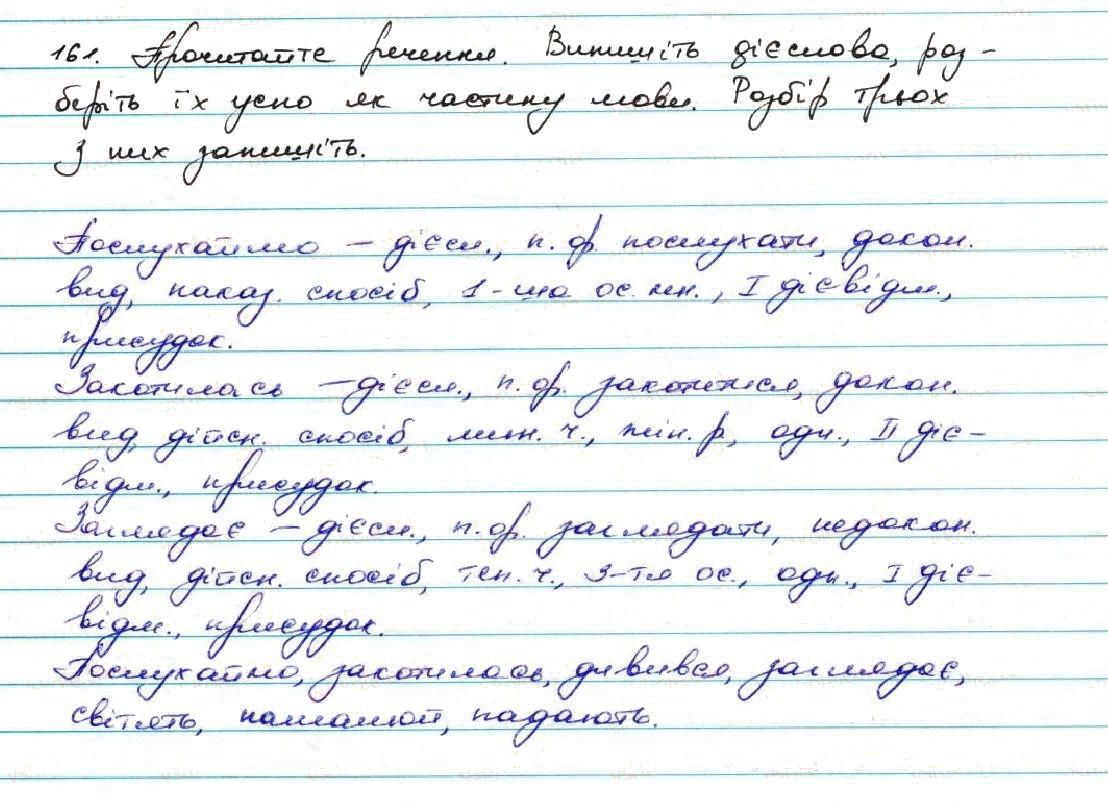 161. Прочитайте речення. Випишіть дієслова, роз-
беріть їх усно як частину мови. Розбір трьох
з них запишіть.
Послухаймо – дієсл., п. ф. послухати, докон.
вид, наказ. спосіб, 1-ша ос. мн., І дієвідм.,
присудок.
Закотилась – дієсл., п. ф. закотитися, докон.
вид, дійсн. спосіб, мин. ч., жін. р., одн., ІІ діє-
відм., присудок.
Заглядає – дієсл., п. ф. заглядати, недокон.
вид, дійсн. спосіб, теп. ч., 3-тя ос., одн., І діє-
відм., присудок.
Послухаймо, закотилась, дивився, заглядає,
світять, намалюй, падають.